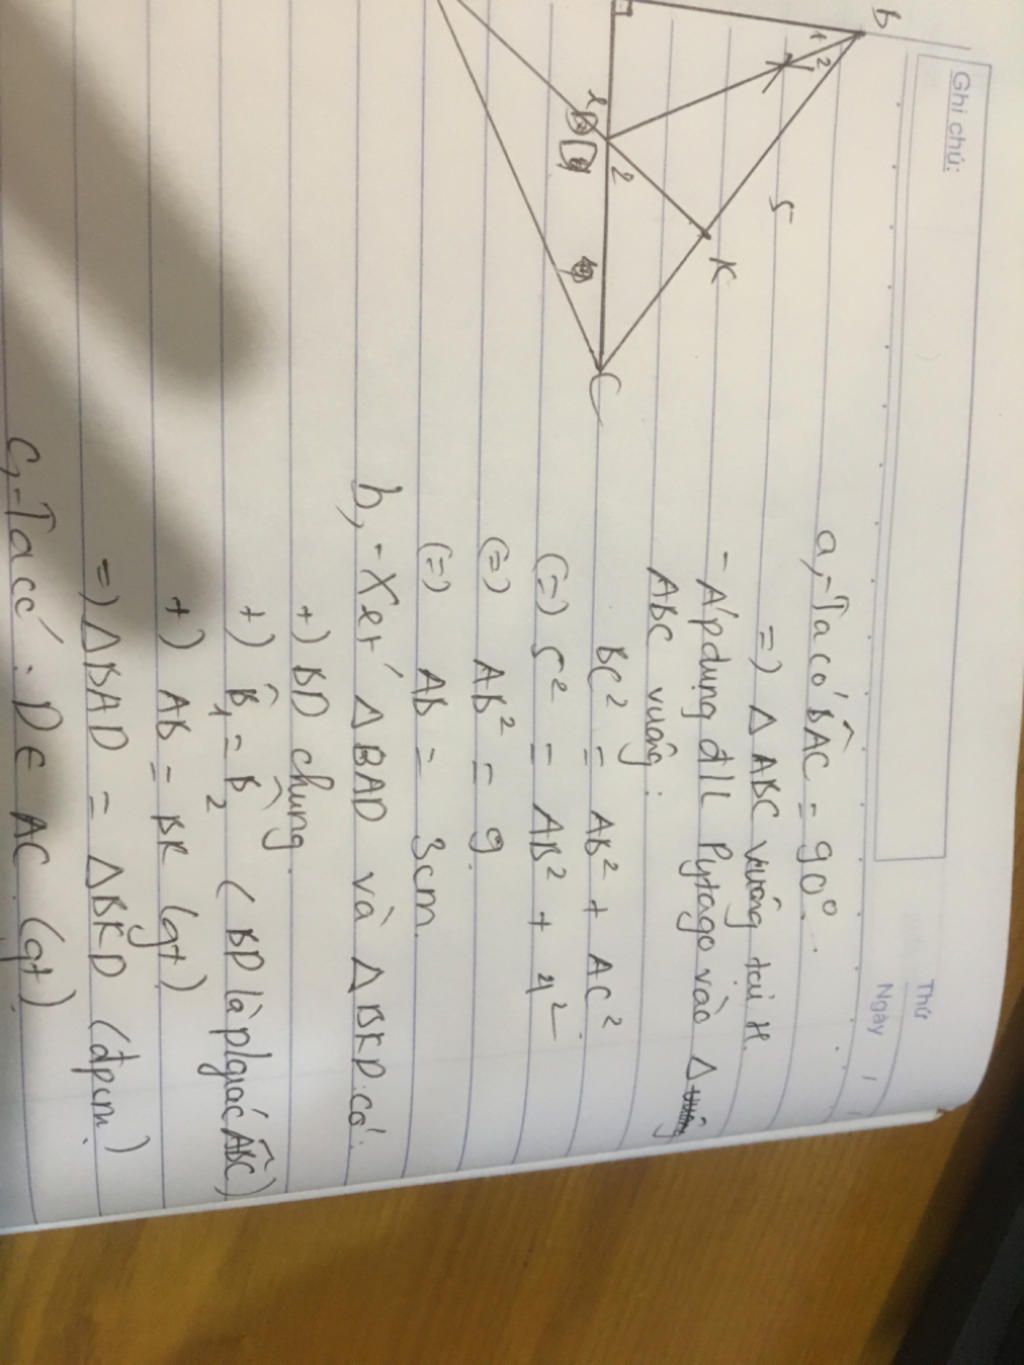 Ghi chú:
Thứ
Ngày
B
1
2
5
K
1
2
C
a, - Ta có BÂC = 90°.
=) Δ ABC vuông tại H.
- Áp dụng đ/L Pytago vào Δ vuông
ABC vuông:
BC² = AB² + AC²
(=) 5² = AB² + 4²
(=) AB² = 9.
(=) AB = 3cm.
b, - Xét Δ BAD và Δ BKD có:
+) BD chung.
+) B̂₁ = B̂₂ (BD là p/giác ABC)
+) AB = BK (gt)
=) ΔBAD = ΔBKD (đpcm)
c, - Ta có: D ∈ AC (gt)